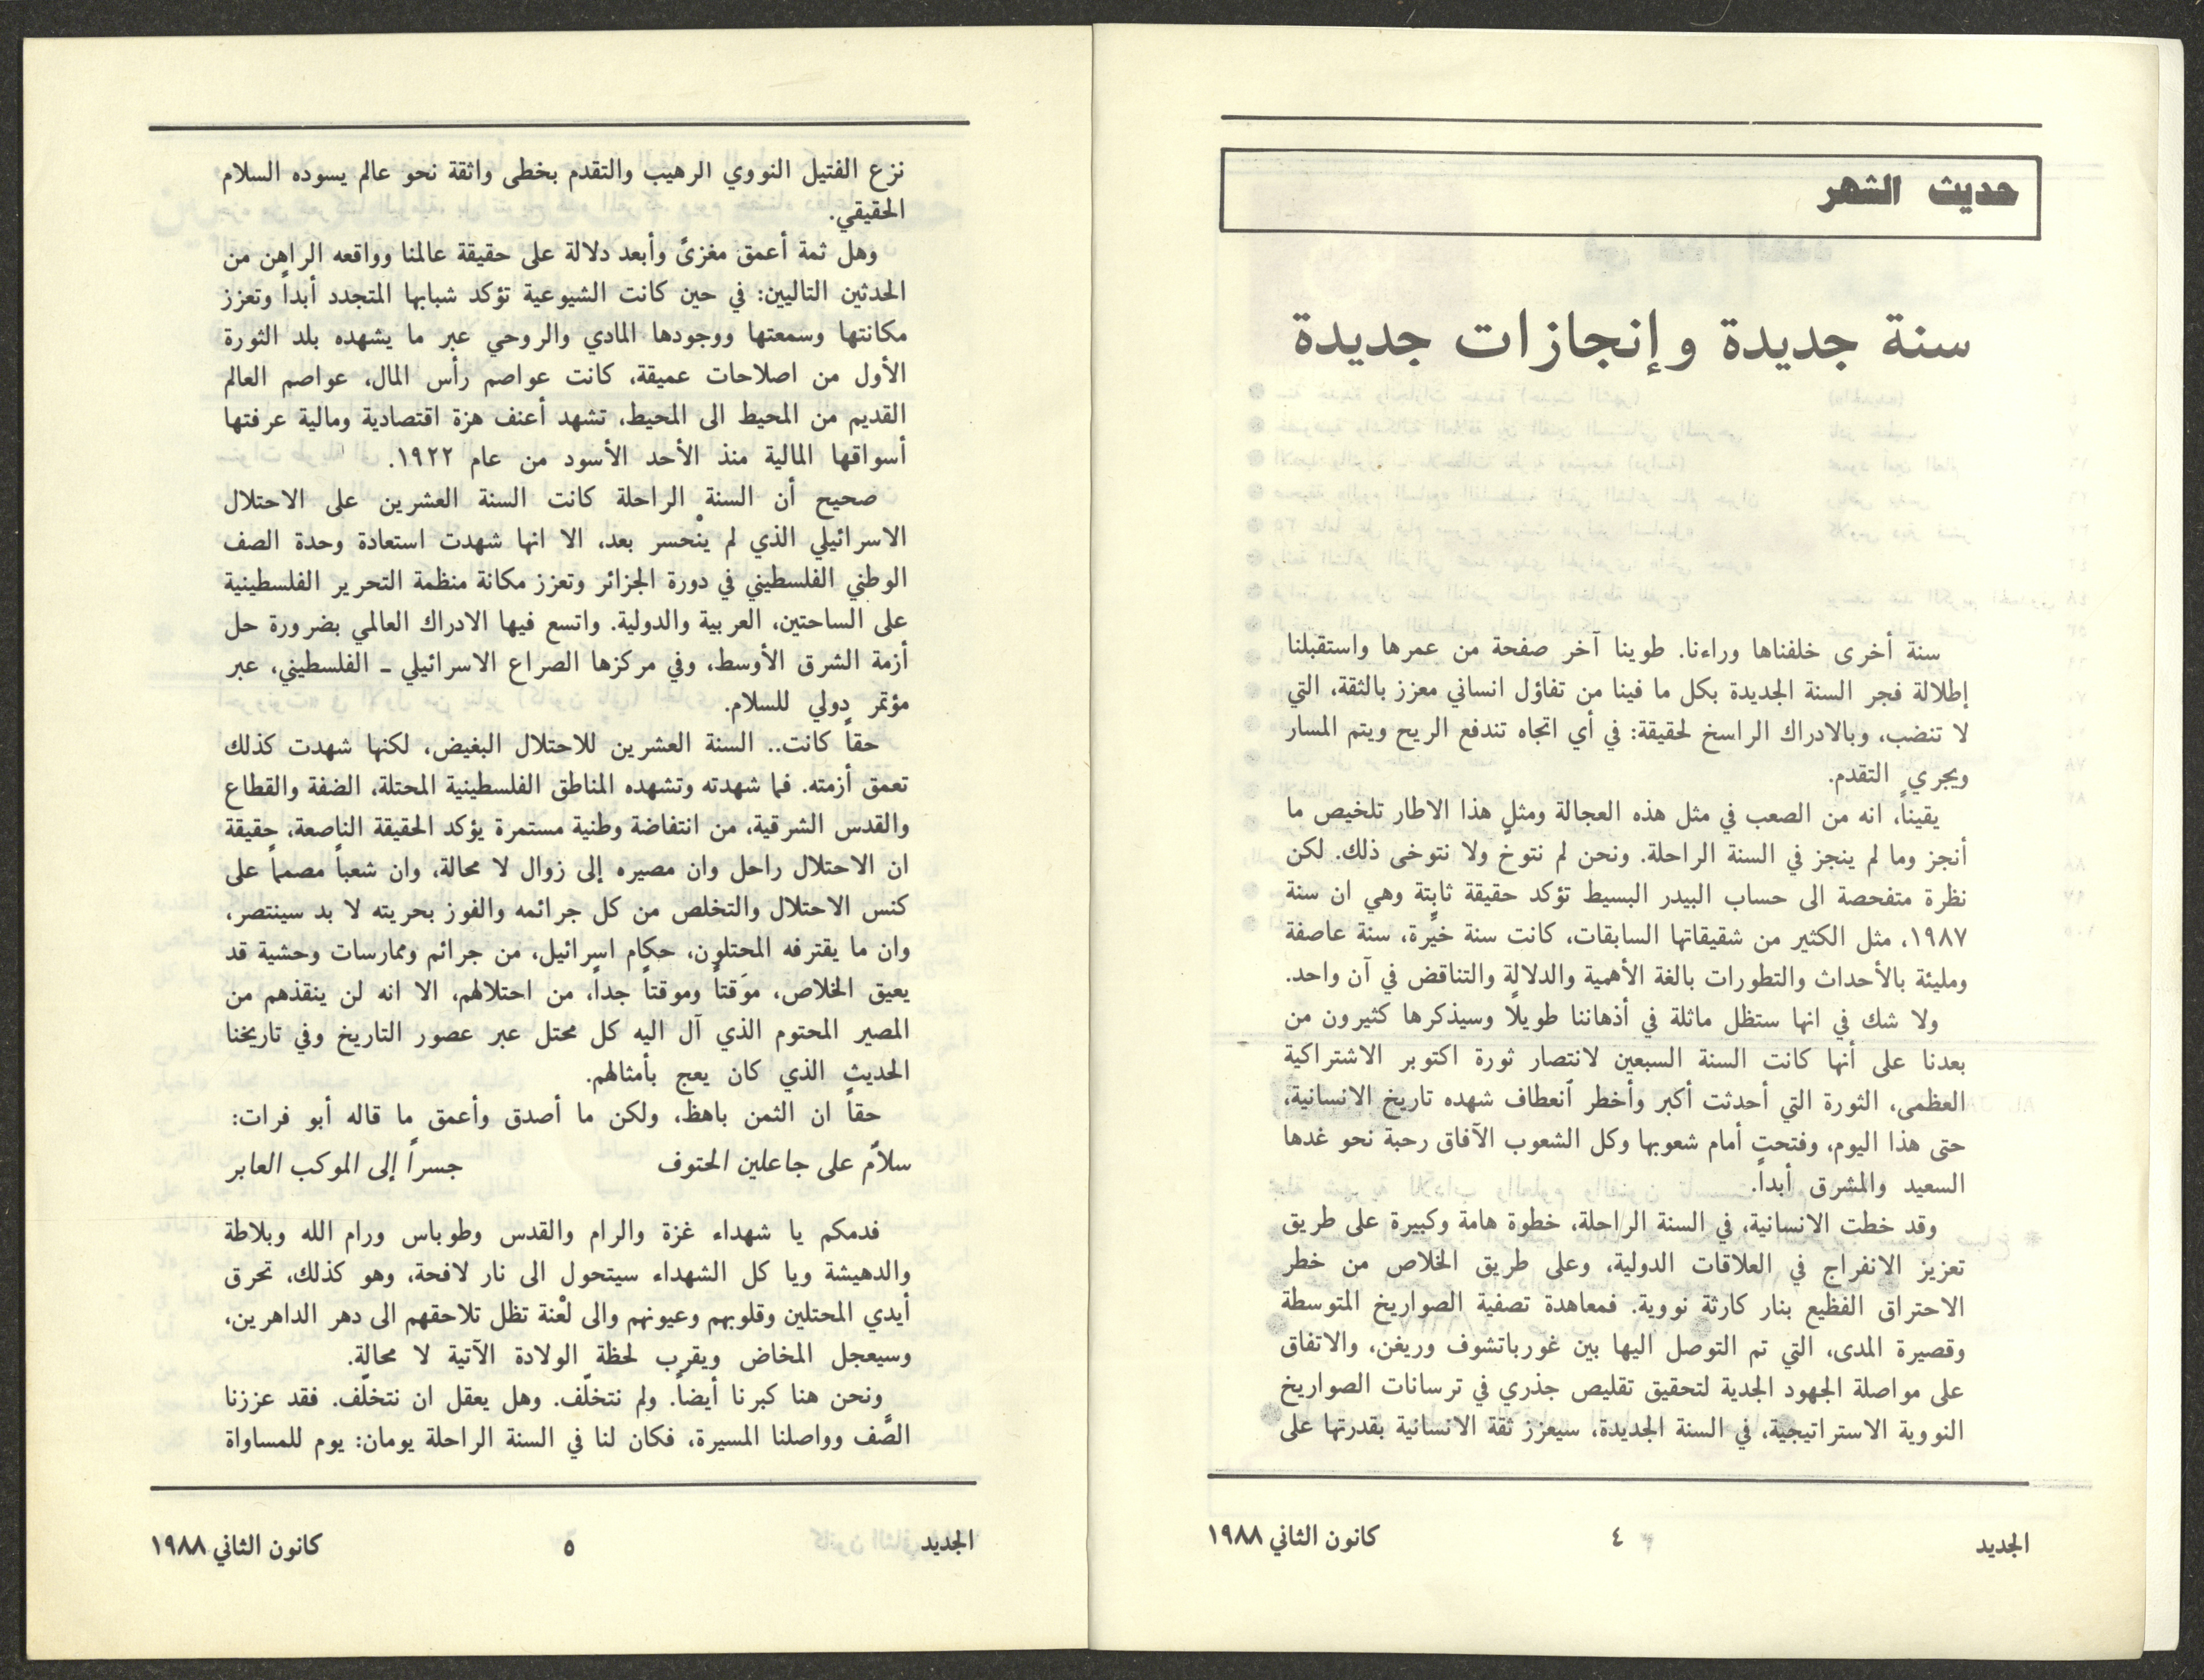 حديث الشهر
سنة جديدة وإنجازات جديدة
سنة أخرى خلفناها وراءنا. طوينا آخر صفحة من عمرها واستقبلنا
إطلالة فجر السنة الجديدة بكل ما فينا من تفاؤل انساني معزز بالثقة، التي
لا تنضب، وبالادراك الراسخ لحقيقة: في أي اتجاه تندفع الريح ويتم المسار
ويجري التقدم.
يقيناً، انه من الصعب في مثل هذه العجالة ومثل هذا الاطار تلخيص ما
أنجز وما لم ينجز في السنة الراحلة. ونحن لم نتوخ ولا نتوخى ذلك. لكن
نظرة متفحصة الى حساب البيدر البسيط تؤكد حقيقة ثابتة وهي ان سنة
١٩٨٧، مثل الكثير من شقيقاتها السابقات، كانت سنة خيِّرة، سنة عاصفة
ومليئة بالأحداث والتطورات بالغة الأهمية والدلالة والتناقض في آن واحد.
ولا شك في انها ستظل ماثلة في أذهاننا طويلاً وسيذكرها كثيرون من
بعدنا على أنها كانت السنة السبعين لانتصار ثورة اكتوبر الاشتراكية
العظمى، الثورة التي أحدثت أكبر وأخطر ٱنعطاف شهده تاريخ الانسانية،
حتى هذا اليوم، وفتحت أمام شعوبها وكل الشعوب الآفاق رحبة نحو غدها
السعيد والمشرق أبداً.
وقد خطت الانسانية، في السنة الراحلة، خطوة هامة وكبيرة على طريق
تعزيز الانفراج في العلاقات الدولية، وعلى طريق الخلاص من خطر
الاحتراق الفظيع بنار كارثة نووية. فمعاهدة تصفية الصواريخ المتوسطة
وقصيرة المدى، التي تم التوصل اليها بين غورباتشوف وريغن، والاتفاق
على مواصلة الجهود الجدية لتحقيق تقليص جذري في ترسانات الصواريخ
النووية الاستراتيجية، في السنة الجديدة، سيعزز ثقة الانسانية بقدرتها على
الجديد
٤
كانون الثاني ١٩٨٨
نزع الفتيل النووي الرهيب والتقدم بخطى واثقة نحو عالم يسوده السلام
الحقيقي.
وهل ثمة أعمق مغزىً وأبعد دلالة على حقيقة عالمنا وواقعه الراهن من
الحدثين التاليين: في حين كانت الشيوعية تؤكد شبابها المتجدد أبداً وتعزز
مكانتها وسمعتها ووجودها المادي والروحي عبر ما يشهده بلد الثورة
الأول من اصلاحات عميقة، كانت عواصم رأس المال، عواصم العالم
القديم من المحيط الى المحيط، تشهد أعنف هزة اقتصادية ومالية عرفتها
أسواقها المالية منذ الأحد الأسود من عام ١٩٢٢.
صحيح أن السنة الراحلة كانت السنة العشرين على الاحتلال
الاسرائيلي الذي لم ينْحسر بعد، الا انها شهدت استعادة وحدة الصف
الوطني الفلسطيني في دورة الجزائر وتعزز مكانة منظمة التحرير الفلسطينية
على الساحتين، العربية والدولية. واتسع فيها الادراك العالمي بضرورة حل
أزمة الشرق الأوسط، وفي مركزها الصراع الاسرائيلي ــ الفلسطيني، عبر
مؤتمر دولي للسلام.
حقاً كانت.. السنة العشرين للاحتلال البغيض، لكنها شهدت كذلك
تعمق أزمته. فما شهدته وتشهده المناطق الفلسطينية المحتلة، الضفة والقطاع
والقدس الشرقية، من انتفاضة وطنية مستمرة يؤكد الحقيقة الناصعة، حقيقة
ان الاحتلال راحل وان مصيره إلى زوال لا محالة، وان شعباً مصمماً على
كنس الاحتلال والتخلص من كل جرائمه والفوز بحريته لا بد سينتصر،
وان ما يقترفه المحتلون، حكام اسرائيل، من جرائم وممارسات وحشية قد
يعيق الخلاص، موَقتاً وموقتاً جداً، من احتلالهم، الا انه لن ينقذهم من
المصير المحتوم الذي آل اليه كل محتل عبر عصور التاريخ وفي تاريخنا
الحديث الذي كان يعج بأمثالهم.
حقاً ان الثمن باهظ، ولكن ما أصدق وأعمق ما قاله أبو فرات:
سلامٌ على جاعلين الحتوف    جسراً إلى الموكب العابر
فدمكم يا شهداء غزة والرام والقدس وطوباس ورام الله وبلاطة
والدهيشة ويا كل الشهداء سيتحول الى نار لافحة، وهو كذلك، تحرق
أيدي المحتلين وقلوبهم وعيونهم والى لعْنة تظل تلاحقهم الى دهر الداهرين،
وسيعجل المخاض ويقرب لحظة الولادة الآتية لا محالة.
ونحن هنا كبرنا أيضاً. ولم نتخلّف. وهل يعقل ان نتخلّف. فقد عززنا
الصَّف وواصلنا المسيرة، فكان لنا في السنة الراحلة يومان: يوم للمساواة
الجديد
٥
كانون الثاني ١٩٨٨